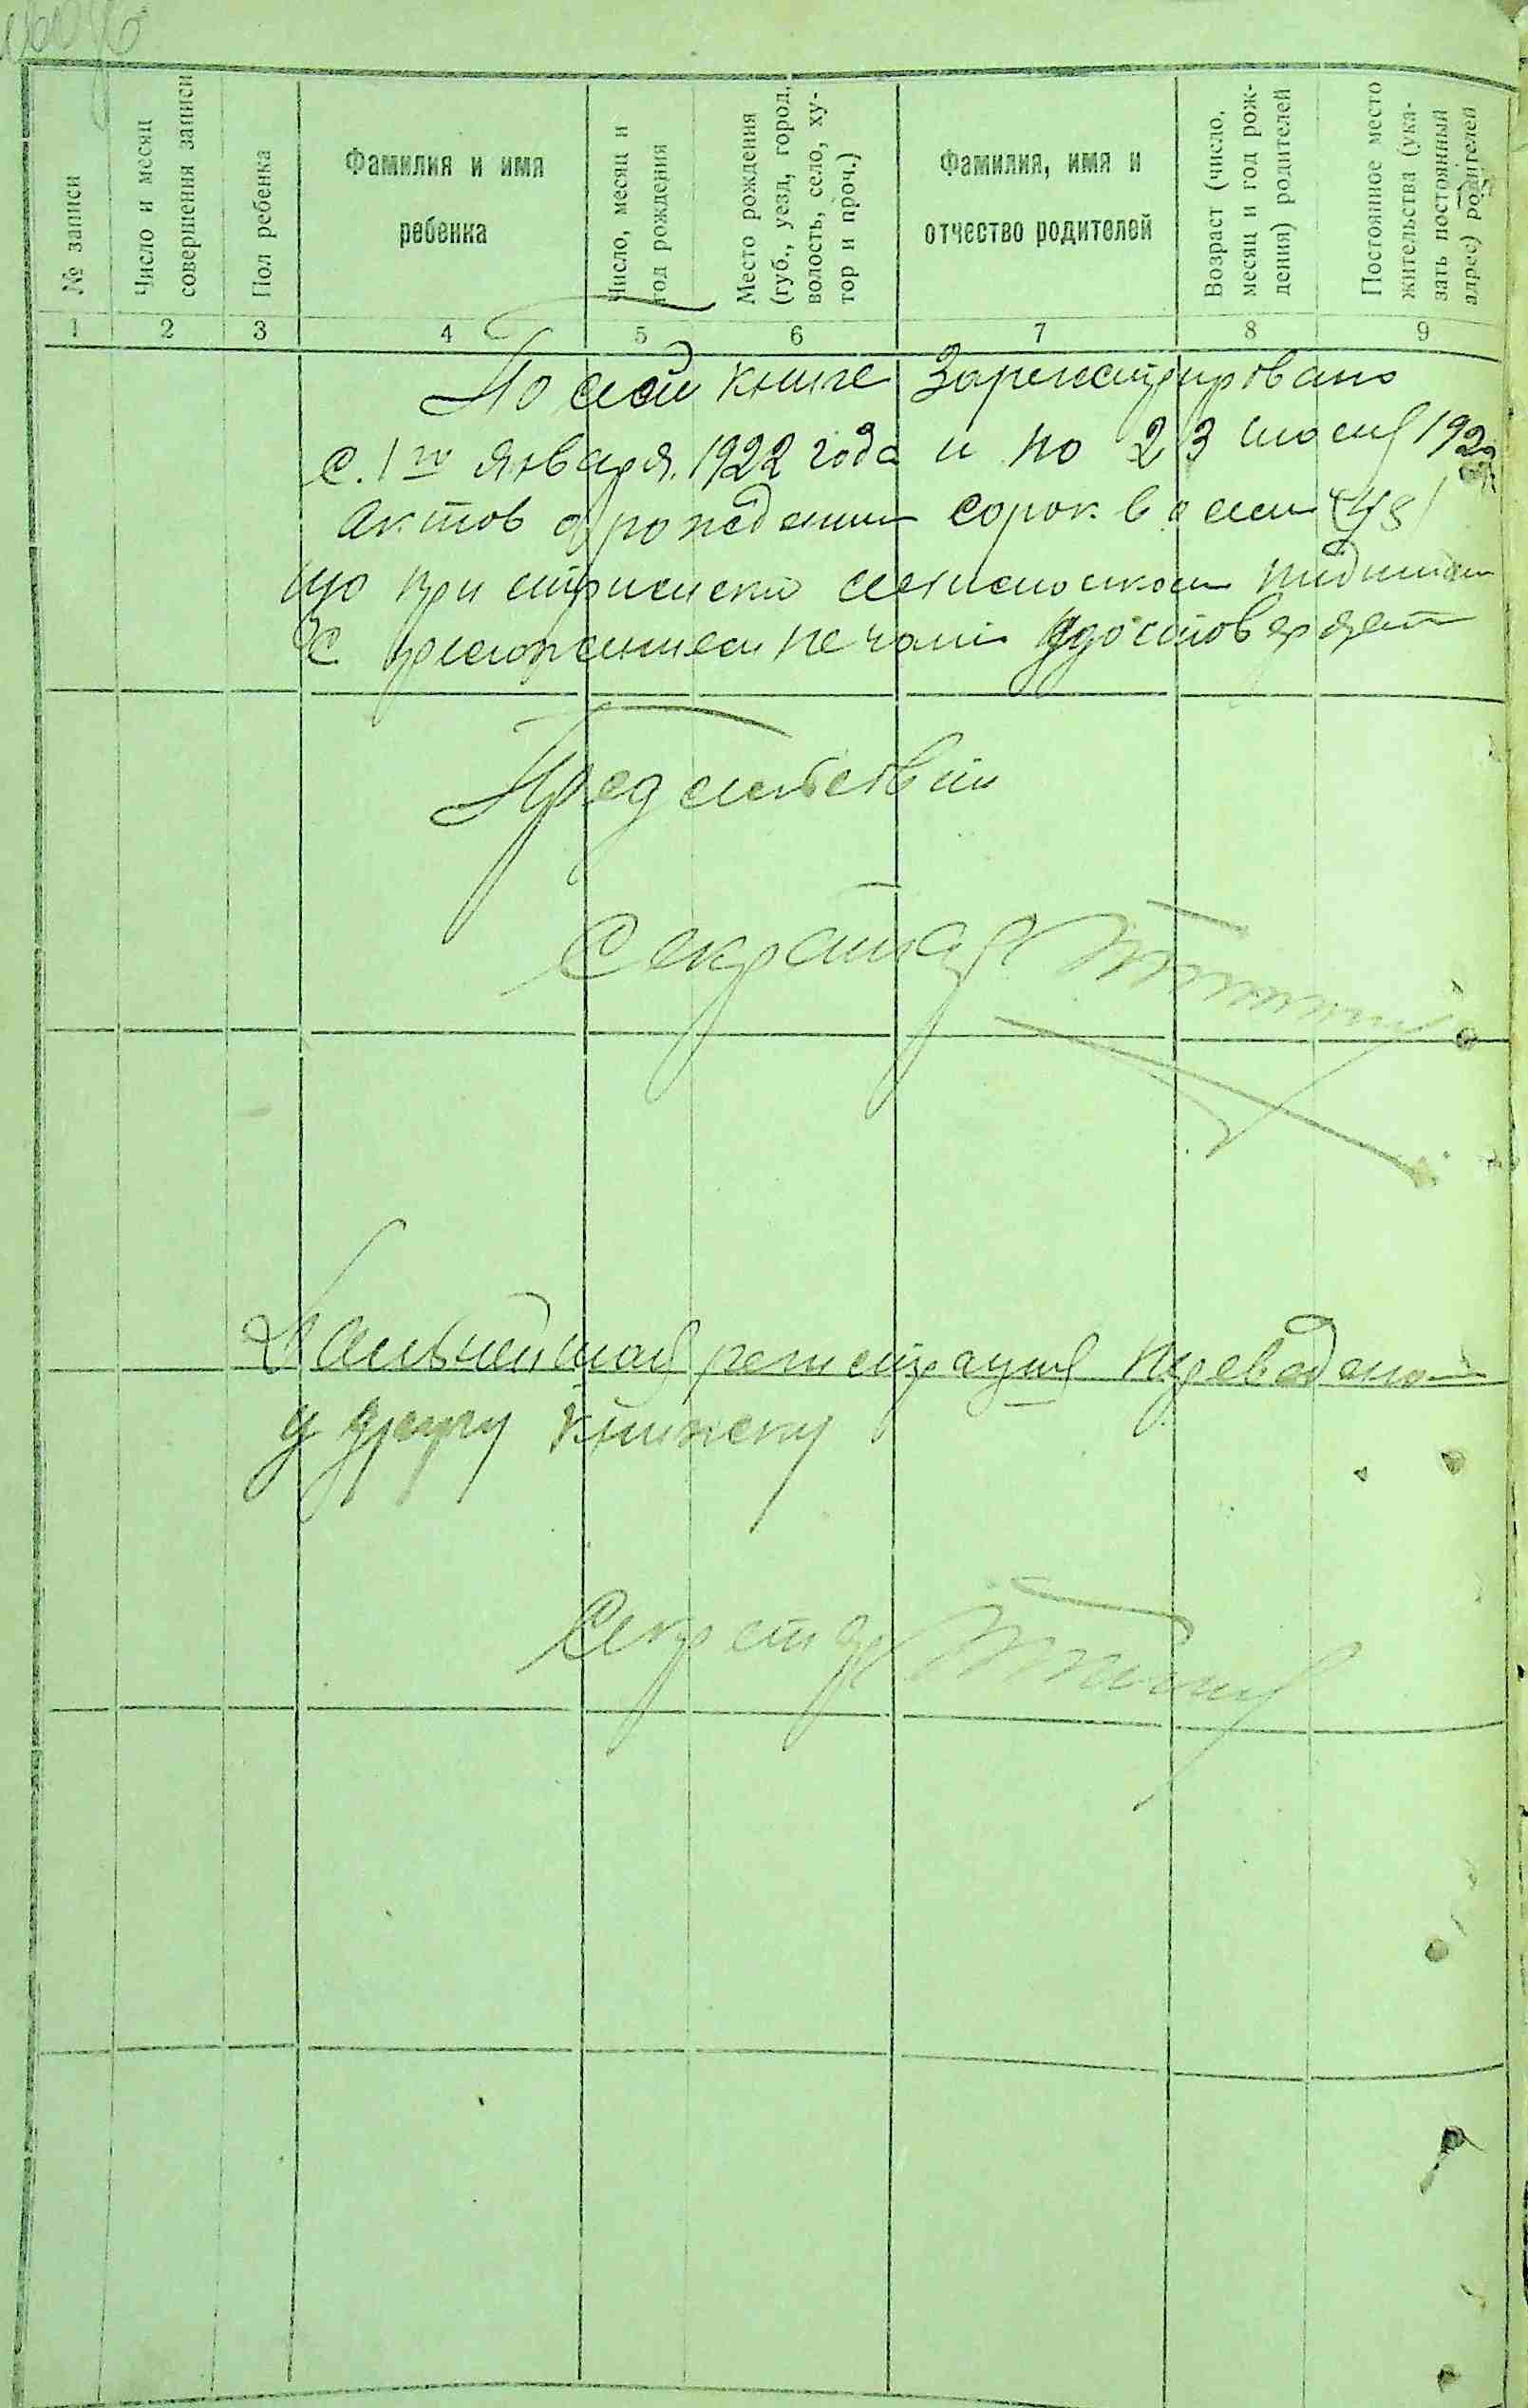 № записи
Число и месяц
совершения записи
Пол ребенка
Фамилия и имя
ребенка
Число, месяц и
год рождения
Место рождения
(губ., уезд, город,
волость, село, ху-
тор и проч.)
Фамилия, имя и
отчество родителей
Возраст (число,
месяц и год рож-
дения) родителей
Постоянное место
жительства (ука-
зать постоянный
адрес) родителей
1 2 3 4 5 6 7 8 9
По сей книге зарегистрировано
с 1го января 1922 года и по 23 июля 192
актов о рождении сорок восем (48)
що при
С приложением печати удостоверяет
Пред сельсовета
Секретар
Дальнейшая регистрация преведено
у другу книжку
Секретар